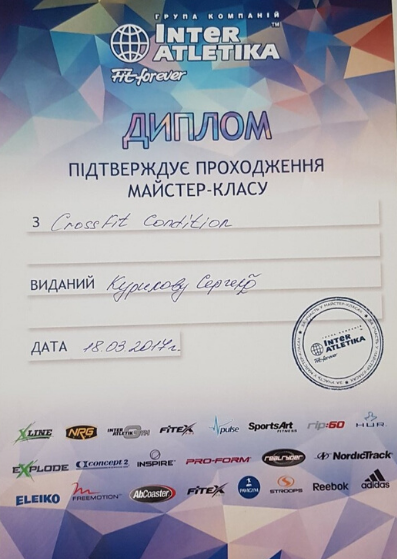 ГРУПА КОМПАНІЙ
Inter
ATLETIKA
Fit-forever
ДИПЛОМ
ПІДТВЕРДЖУЄ ПРОХОДЖЕННЯ
МАЙСТЕР-КЛАСУ
З CrossFit Condition
ВИДАНИЙ Курилову Сергею
ДАТА 18.03 2017г.
Inter
ATLETIKA
Fit-forever
X LINE NRG INTER ATLETIKA GYM FITEX pulse SportsArt FITNESS rip:60 HUR
EXPLODE concept 2 INSPIRE PRO-FORM realryder NordicTrack
ELEIKO FREEMOTION AbCoaster FITEX STROOPS Reebok adidas